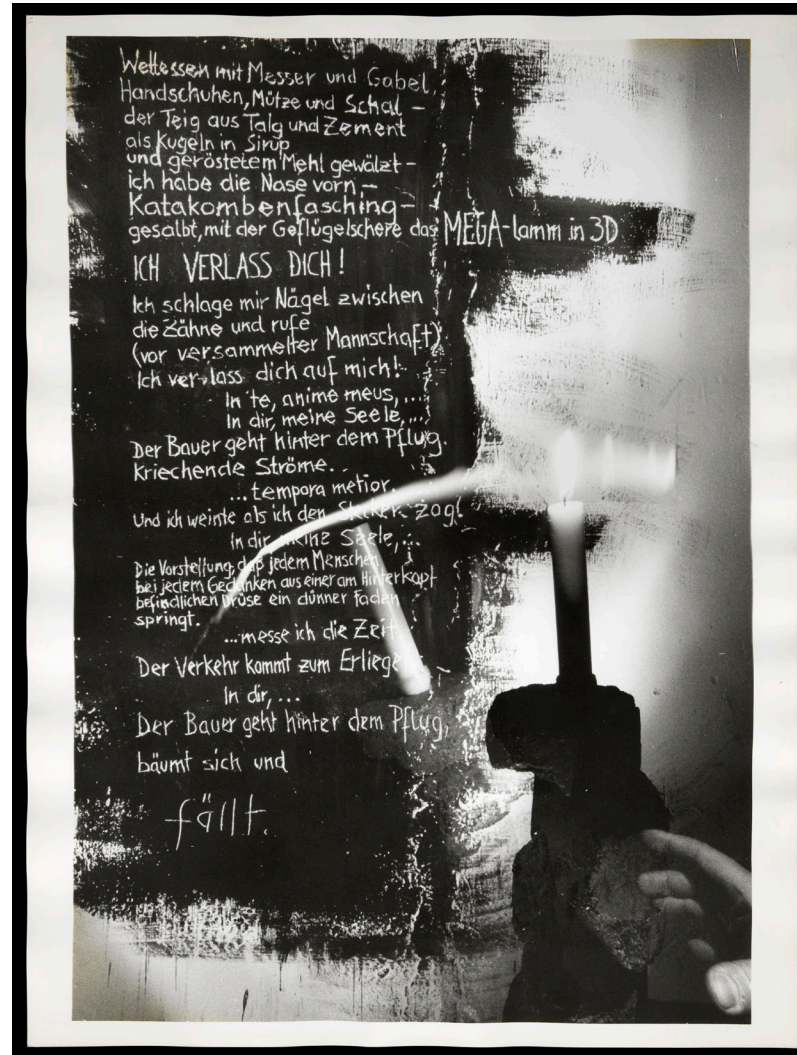 Wettessen mit Messer und Gabel,
Handschuhen, Mütze und Schal –
der Teig aus Talg und Zement
als Kugeln in Sirup
und geröstetem Mehl gewälzt –
ich habe die Nase vorn, –
Katakombenfasching –
gesalbt, mit der Geflügelschere das MEGA-lamm in 3D
ICH VERLASS DICH!
Ich schlage mir Nägel zwischen
die Zähne und rufe
(vor versammelter Mannschaft):
Ich ver-lass dich auf mich!
In te, anime meus, ...
In dir, meine Seele, ...
Der Bauer geht hinter dem Pflug.
Kriechende Ströme...
... tempora metior.
Und ich weinte als ich den Stecker zog!
In dir, meine Seele, ...
Die Vorstellung, daß jedem Menschen
bei jedem Gedanken aus einer am Hinterkopf
befindlichen Drüse ein dünner Faden
springt.
... messe ich die Zeit
Der Verkehr kommt zum Erliegen
In dir, ...
Der Bauer geht hinter dem Pflug,
bäumt sich und
fällt.